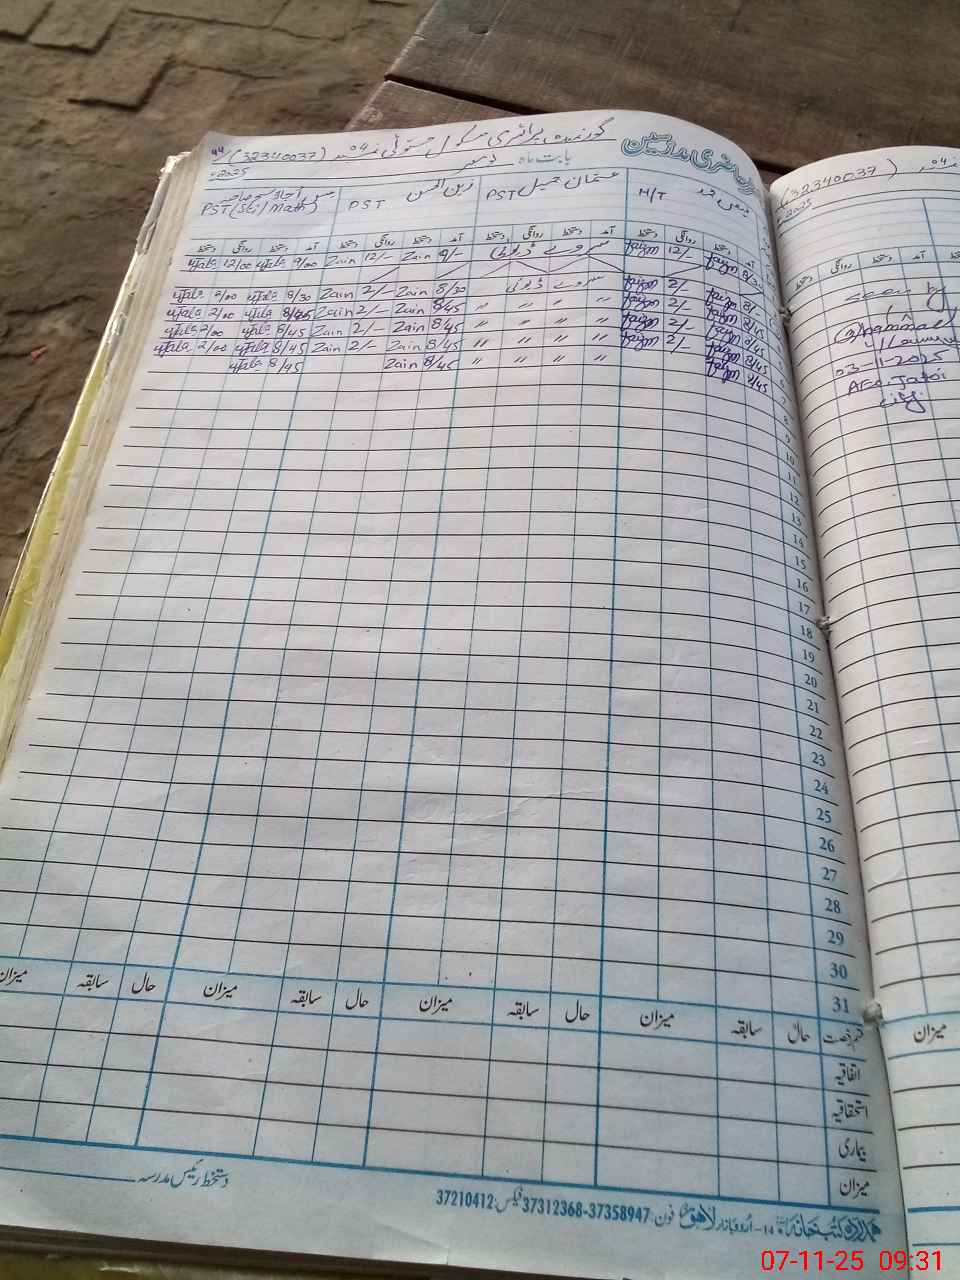 گورنمنٹ پرائمری سکول جتوئی نمبر ۴ (32340037)
حاضری مدرسین
بابت ماہ
2025
H/T
عثمان جمیل PST
زین الحسن PST
PST (Sci/Math)
آمد دستخط روانگی دستخط آمد دستخط روانگی دستخط آمد دستخط روانگی دستخط آمد دستخط روانگی دستخط
12/- سروے ڈیوٹی Zain 9/- Zain 12/- 9/00 12/00
8/30 2/- سروے ڈیوٹی Zain 8/30 Zain 2/- 8/30 2/00
8/45 2/- " " " " Zain 8/45 Zain 2/- 8/45 2/00
8/45 2/- " " " " Zain 8/45 Zain 2/- 8/45 2/00
8/45 2/- " " " " Zain 8/45 Zain 2/- 8/45 2/00
8/45 " " " " Zain 8/45 8/45
7
8
9
10
11
12
13
14
15
16
17
18
19
20
21
22
23
24
25
26
27
28
29
30
31
قسم رخصت حال سابقہ میزان حال سابقہ میزان حال سابقہ میزان حال سابقہ میزان
اتفاقیہ
استحقاقیہ
بیماری
میزان
دستخط رئیس مدرسہ
ہمدرد کتب خانہ 14-اُردو بازار لاہور فون: 37358947-37312368 فیکس: 37210412
(32340037)
2025
دستخط روانگی دستخط
Seen by
03-11-2025
AEO Jatoi
City
میزان
07-11-25 09:31